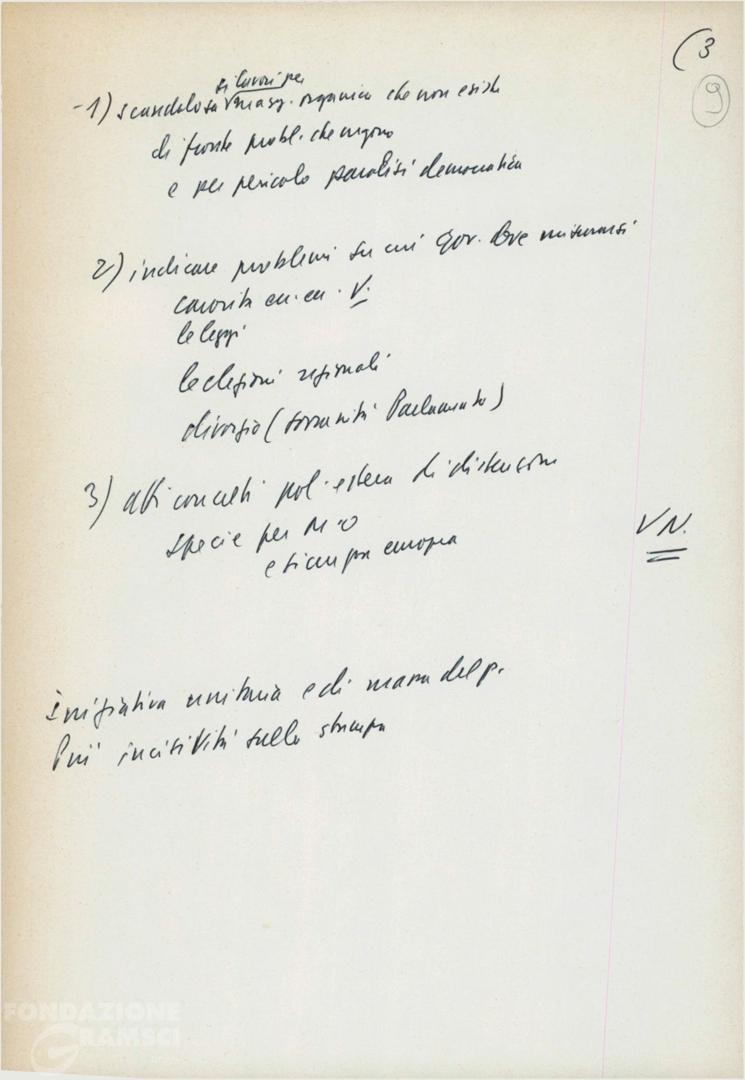 (3
9
si lavori per
-1) scandoloso magg. organica che non esiste
di fronte probl. che urgono
e per pericolo paralisi democratica
2) indicare problemi su cui gov. deve misurarsi
carovita V.
le leggi
le elezioni regionali
divorzio (sovranità Parlamento)
3) atti concreti pol. estera di distensione
specie per M.O
e sicurezza europea
V N.
Iniziativa unitaria e di massa del p.
Più incisività sulla stampa
FONDAZIONE
GRAMSCI